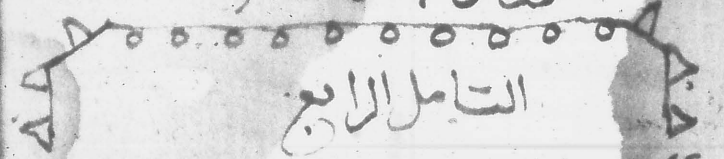 التامل الرابع